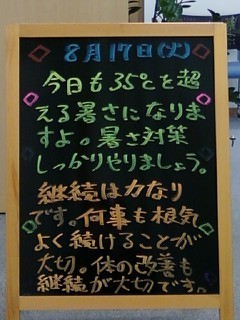 8月17日(火)
今日も35℃を超
える暑さになりま
すよ。暑さ対策
しっかりやりましょう。
継続は力なり
です。何事も根気
よく続けることが
大切。体の改善も
継続が大切です。